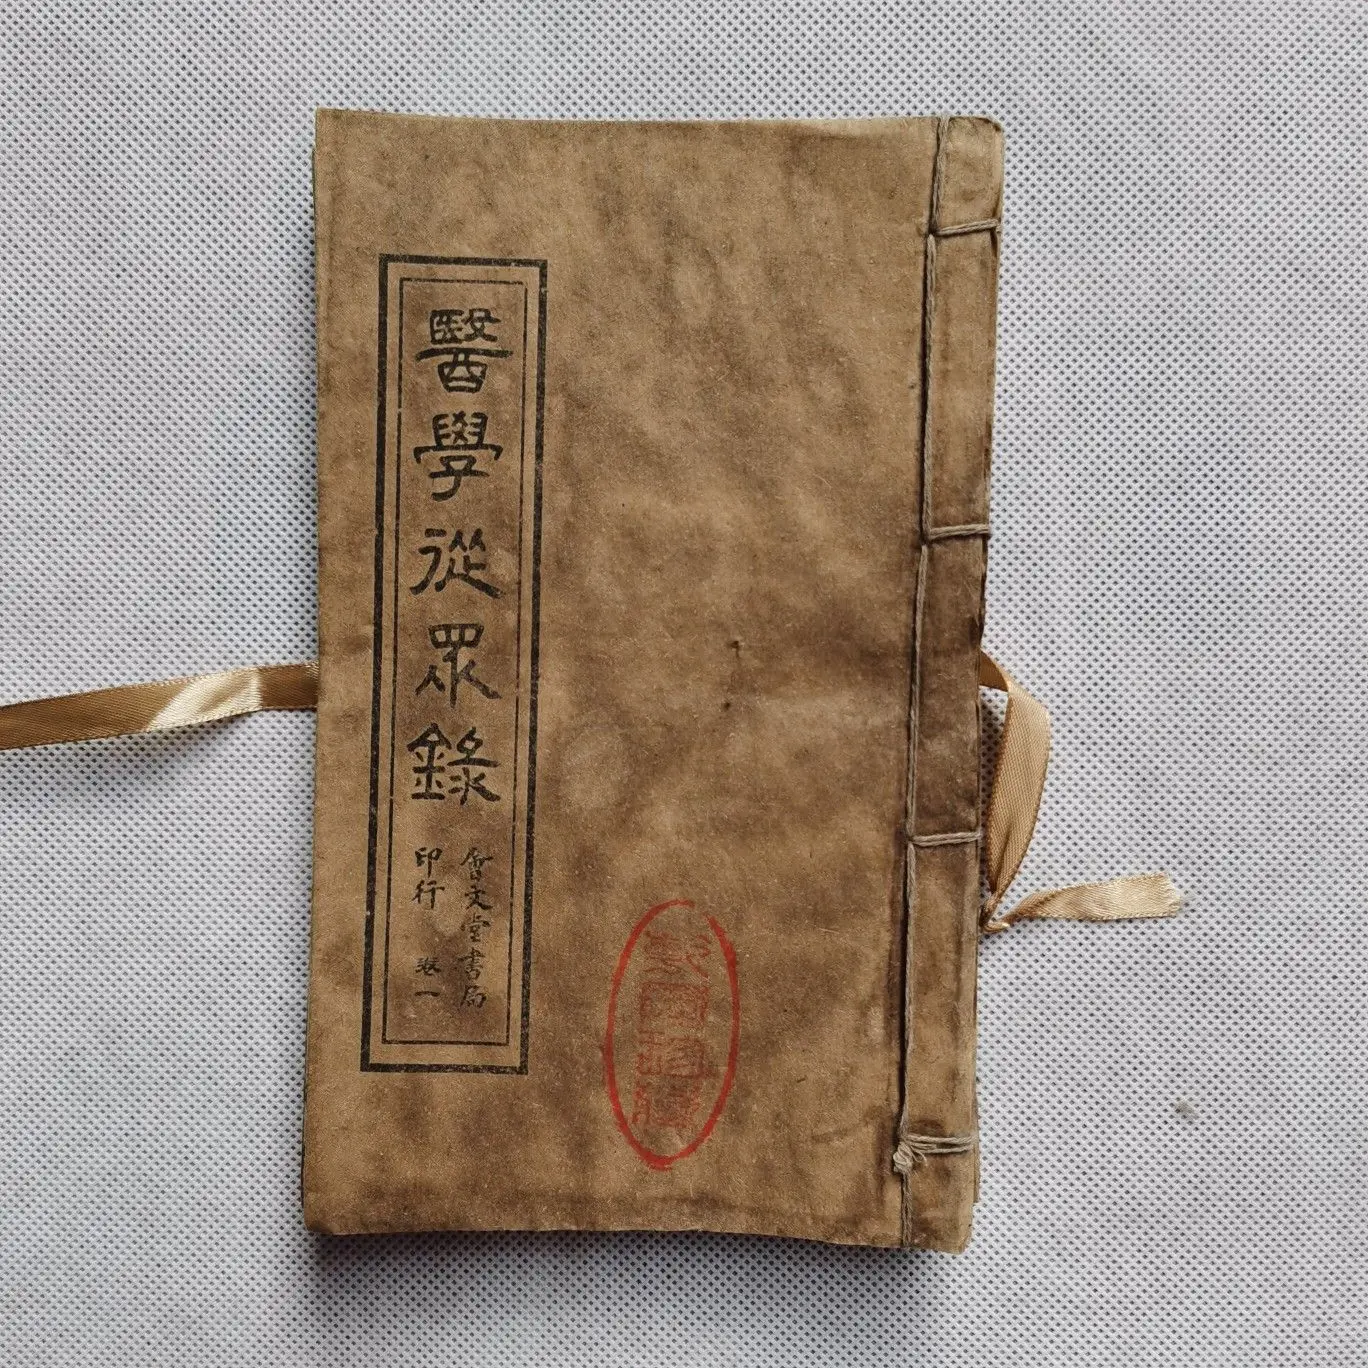 醫學從眾錄
會文堂書局
印行 卷一